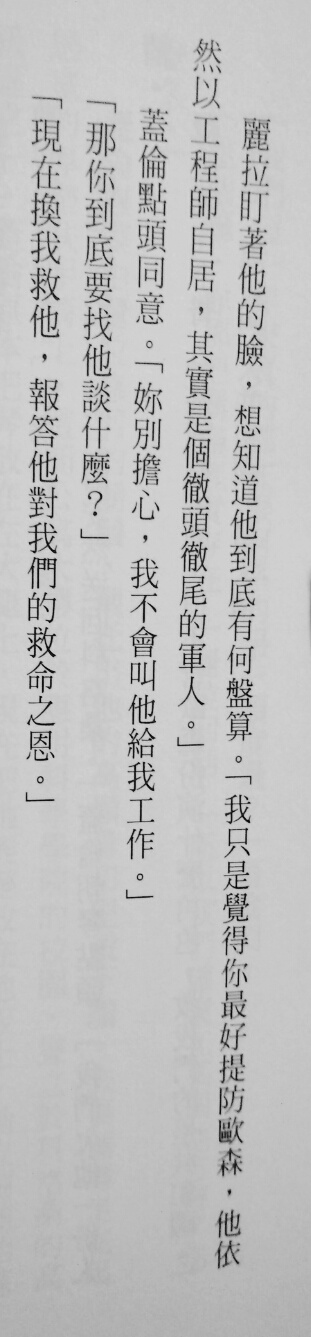 麗拉盯著他的臉，想知道他到底有何盤算。「我只是覺得你最好提防歐森，他依
然以工程師自居，其實是個徹頭徹尾的軍人。」
蓋倫點頭同意。「妳別擔心，我不會叫他給我工作。」
「那你到底要找他談什麼？」
「現在換我救他，報答他對我們的救命之恩。」